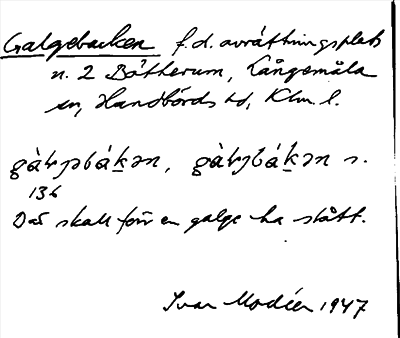 Galgebacken f.d. avrättningsplats
n. 2 Bötterum, Långemåla
sn, Handbörds hd, Klm. l.
136
Där skall förr en galge ha stått.
Ivar Modéer 1947